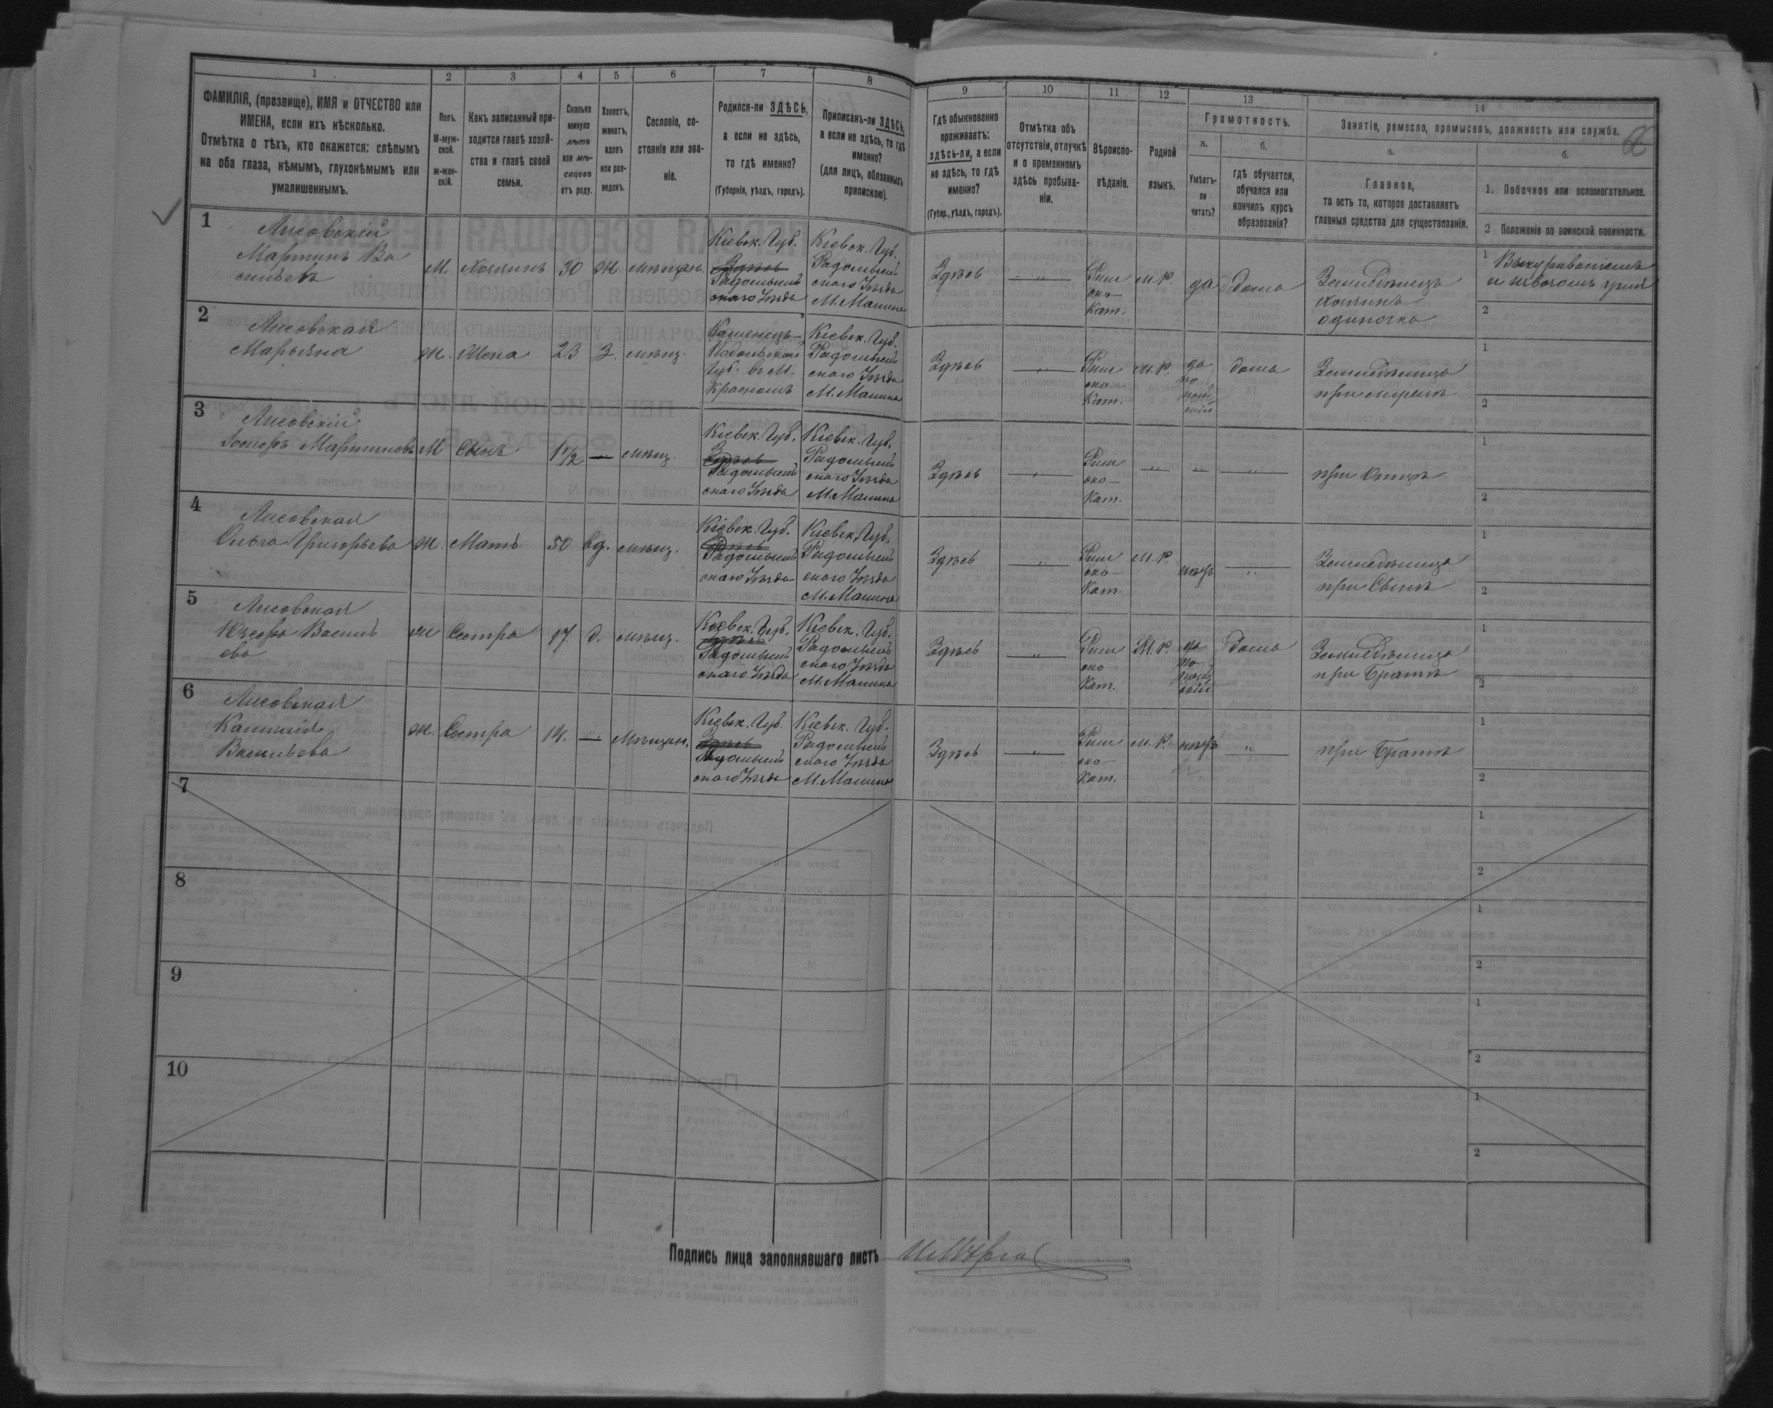 1 2 3 4 5 6 7 8
ФАМИЛІЯ, (прозвище), ИМЯ и ОТЧЕСТВО или
ИМЕНА, если ихъ нѣсколько.
Отмѣтка о тѣхъ, кто окажется: слѣпымъ
на оба глаза, нѣмымъ, глухонѣмымъ или
умалишеннымъ.
Полъ.
М-муж-
ской.
ж-жен-
скій.
Какъ записанный при-
ходится главѣ хозяй-
ства и главѣ своей
семьи.
Сколько
минуло
лѣтъ
или мѣ-
сяцевъ
отъ роду.
Холостъ,
женатъ,
вдовъ
или раз-
веденъ.
Сословіе, со-
стояніе или зва-
ніе.
Родился-ли ЗДѢСЬ,
а если не здѣсь,
то гдѣ именно?
(Губернія, уѣздъ, городъ).
Приписанъ-ли ЗДѢСЬ,
а если не здѣсь, то гдѣ
именно?
(для лицъ, обязанныхъ
припискою).
9 10 11 12 13 14
Гдѣ обыкновенно
проживаетъ:
здѣсь-ли, а если
не здѣсь, то гдѣ
именно?
(Губер., уѣздъ, городъ).
Отмѣтка объ
отсутствіи, отлучкѣ
и о временномъ
здѣсь пребыва-
ніи.
Вѣроиспо-
вѣданіе.
Родной
языкъ.
Грамотность.
а.
Умѣетъ-
ли
читать?
б.
гдѣ обучается,
обучался или
кончилъ курсъ
образованія?
Занятіе, ремесло, промыселъ, должность или служба.
66
а.
Главное,
то есть то, которое доставляетъ
главныя средства для существованія.
б.
1. Побочное или вспомогательное.
2 Положеніе по воинской повинности.
1
Лисовскій
Мартинъ Ва
сильевъ
М. Хозяинъ 30 Ж. мѣщан.
Кіевск. Губ.
Здѣсь
Радомысль
скаго Уѣзда
Кіевск. Губ.
Радомысль
скаго Уѣзда
М. Малина
Здѣсь
Рим
ско-
Кат.
М.Р.
да
дома
Земледѣлецъ
хозяинъ
одиночка
1
2
2
Лисовская
Марьяна
Ж. Жена 23 З. мѣщ.
Каменецъ-
Подольской
Губ. в. М.
Красномъ
Кіевск. Губ.
Радомысль
скаго Уѣзда
М. Малина
Здѣсь
Рим
ско-
Кат.
М.Р.
да
по
поль
ски
дома
Земледѣлица
при мужѣ
1
2
3
Лисовскій
Іосифъ Мартиновъ
М Сынъ 1 1/2 — мѣщ.
Кіевск. Губ.
Здѣсь
Радомысль
скаго Уѣзда
Кіевск. Губ.
Радомысль
скаго Уѣзда
М. Малина
Здѣсь
Рим
ско-
Кат.
при отцѣ
1
2
4
Лисовская
Ольга Григорьева
Ж. Мать 50 вд. мѣщ.
Кіевск. Губ.
Здѣсь
Радомысль
скаго Уѣзда
Кіевск. Губ.
Радомысль
скаго Уѣзда
М. Малина
Здѣсь
Рим
ско-
Кат.
М.Р.
нѣтъ
Земледѣлица
при Сынѣ
1
2
5
Лисовская
Юзефа Василь
ева
ж Сестра 17. д. мѣщ.
Кіевск. Губ.
Здѣсь
Радомысль
скаго Уѣзда
Кіевск. Губ.
Радомысль
скаго Уѣзда
М. Малина
Здѣсь
Рим
ско-
Кат.
М.Р.
да
по
поль
ски
Дома
Земледѣлица
при Братѣ
1
2
6
Лисовская
Васильева
Ж. Сестра 14. — Мѣщан.
Кіевск. Губ.
Здѣсь
Радомысль
скаго Уѣзда
Кіевск. Губ.
Радомысль
скаго Уѣзда
М. Малина
Здѣсь
Рим
ско-
Кат.
М.Р.
нѣтъ
при Братѣ
1
2
7
1
2
8
1
2
9
1
2
10
1
2
Подпись лица заполнявшаго листъ